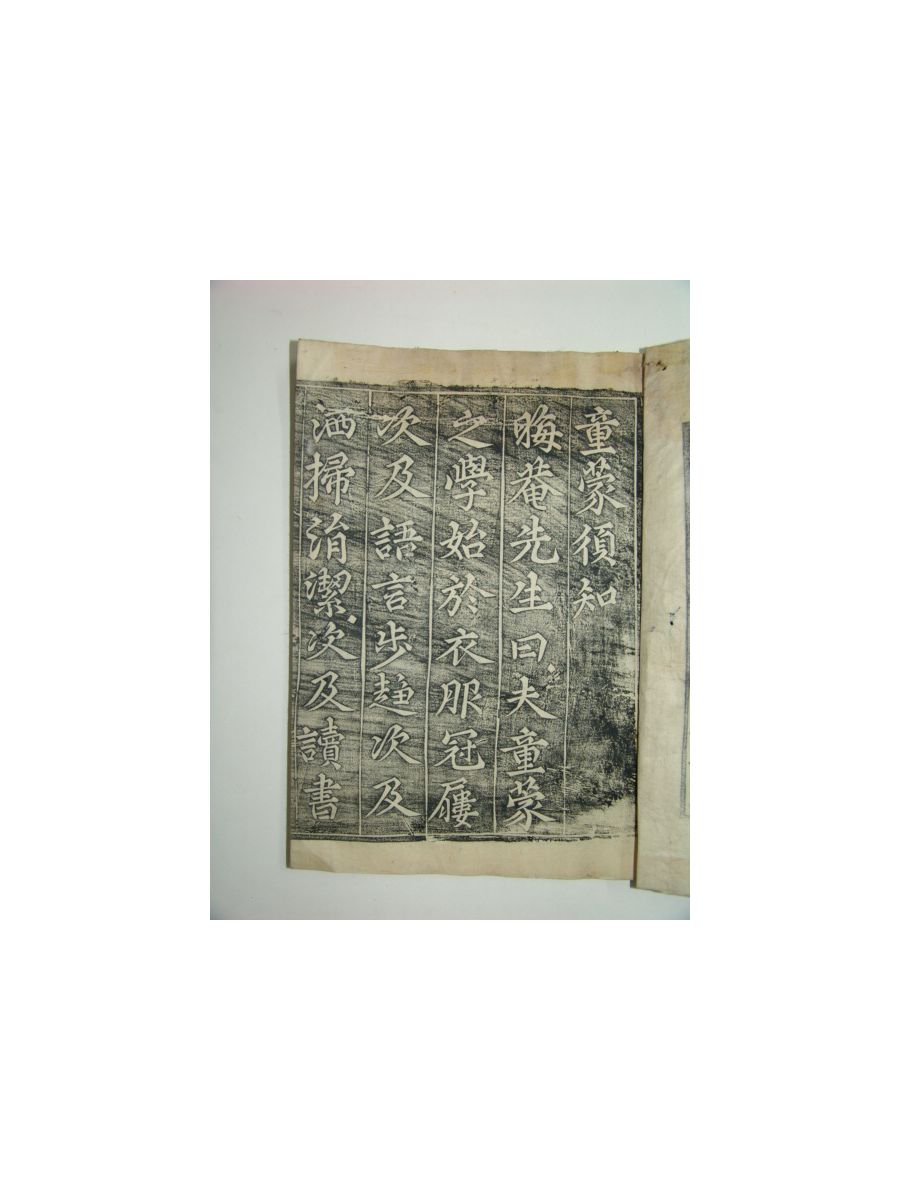 童蒙須知
晦菴先生曰夫童蒙
之學始於衣服冠屨
次及語言步趨次及
洒掃涓潔次及讀書